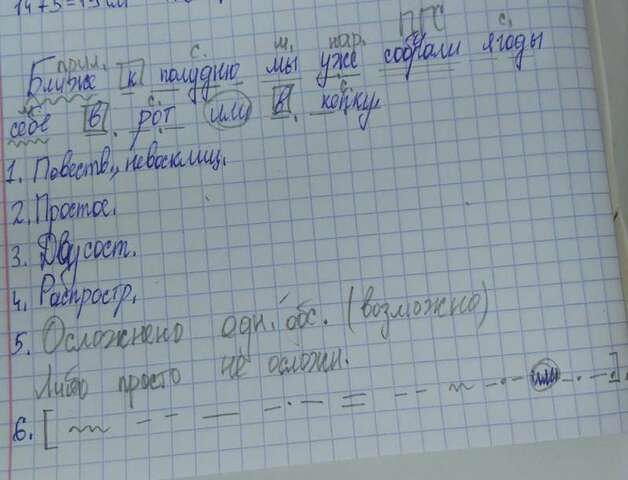 14+5=19
ПГС
прил. с. м. нар. с.
Ближе к полудню мы уже собрали ягоды
м. с. с.
себе в рот или в копку.
1. Повеств., невосклиц.
2. Простое.
3. Двусост.
4. Распростр.
5. Осложнено одн. обс. (возможно)
Либо просто не осложн.
6. [ или ].